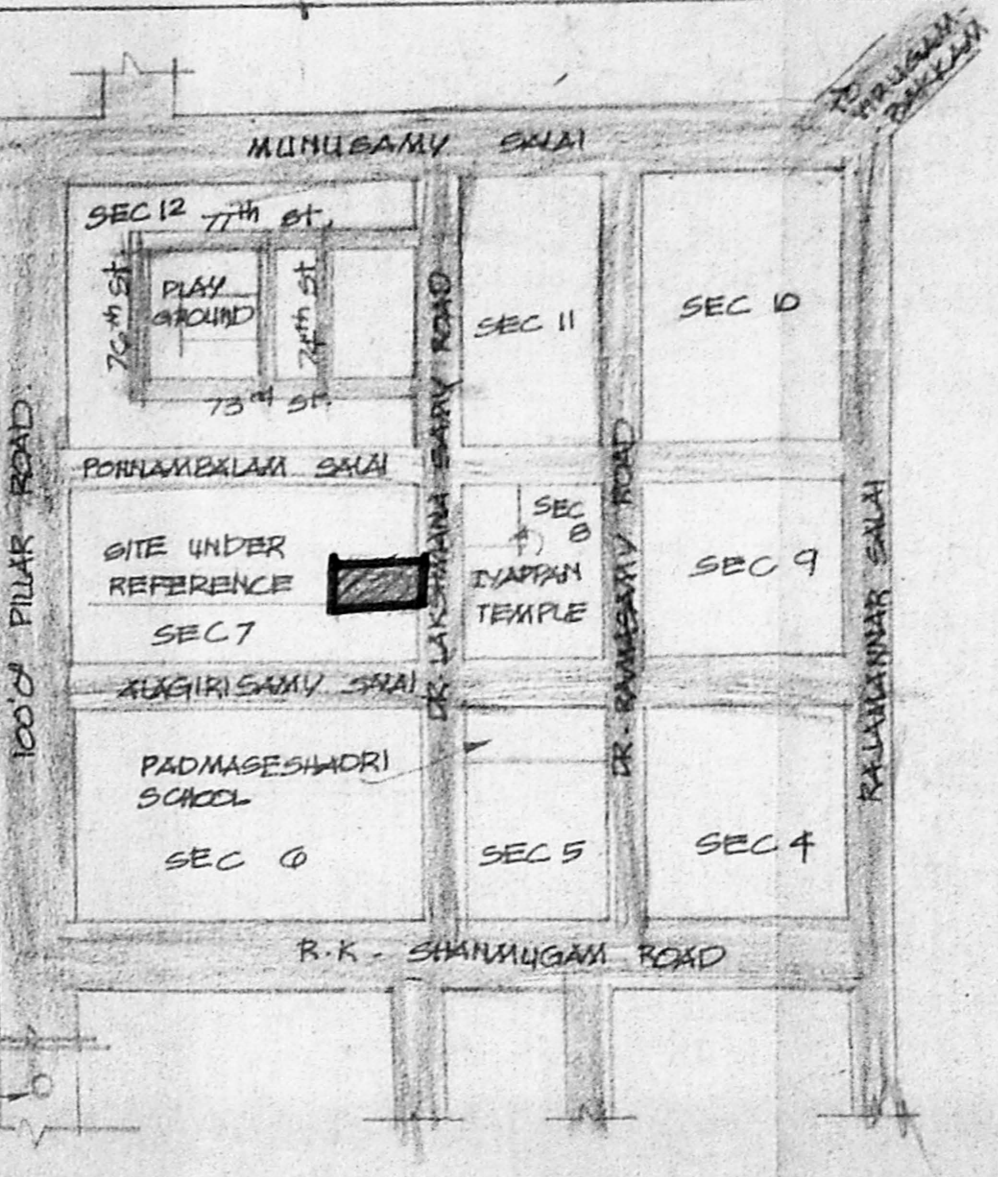 TO
ARUGAM-
BAKKAM
MUNUSAMY SALAI
SEC 12
77th St.
76th St.
PLAY
GROUND
74th St
73rd St.
SEC 11
SEC 10
100'0" PILLAR ROAD.
PONNAMBALAM SALAI
DR. LAKSHMANA SAMY ROAD
DR. RAMASAMY ROAD
RAJAMANNAR SALAI
SITE UNDER
REFERENCE
SEC 7
SEC
8
IYAPPAN
TEMPLE
SEC 9
ALAGIRISAMY SALAI
PADMASESHADRI
SCHOOL
SEC 6
SEC 5
SEC 4
R.K. SHANMUGAM ROAD